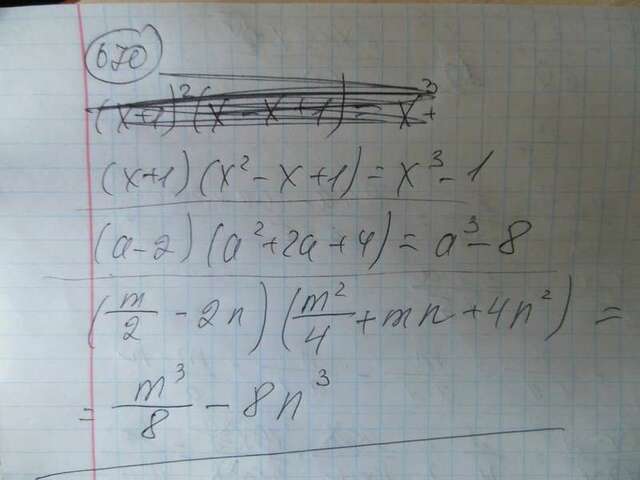 670
(x+1)²(x - x + 1) = x³+
(x+1)(x² - x + 1) = x³ - 1
(a - 2)(a² + 2a + 4) = a³ - 8
(m/2 - 2n)(m²/4 + mn + 4n²) =
= m³/8 - 8n³